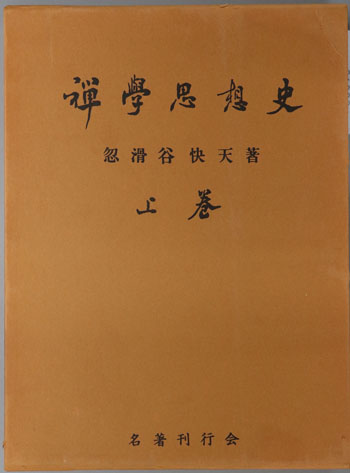 禪學思想史
忽滑谷快天著
上巻
名著刊行会